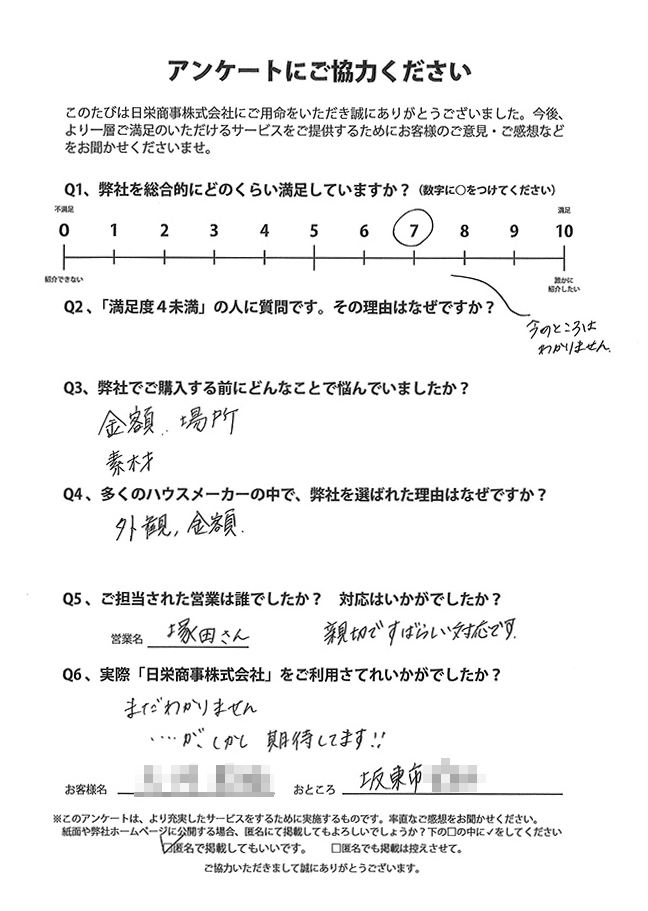 アンケートにご協力ください
このたびは日栄商事株式会社にご用命をいただき誠にありがとうございました。今後、
より一層ご満足のいただけるサービスをご提供するためにお客様のご意見・ご感想など
をお聞かせくださいませ。
Q1、弊社を総合的にどのくらい満足していますか？（数字に○をつけてください）
不満足 満足
0 1 2 3 4 5 6 7 8 9 10
紹介できない 誰かに
紹介したい
Q2、「満足度４未満」の人に質問です。その理由はなぜですか？
今のところは
わかりません。
Q3、弊社でご購入する前にどんなことで悩んでいましたか？
金額、場所
素材
Q4、多くのハウスメーカーの中で、弊社を選ばれた理由はなぜですか？
外観，金額．
Q5、ご担当された営業は誰でしたか？ 対応はいかがでしたか？
営業名 塚田さん 親切ですばらしい対応です．
Q6、実際「日栄商事株式会社」をご利用さてれいかがでしたか？
まだわかりません
‥‥が、しかし 期待してます!!
お客様名 おところ 坂東市
※このアンケートは、より充実したサービスをするために実施するものです。率直なご感想をお聞かせください。
紙面や弊社ホームページに公開する場合、匿名にて掲載してもよろしいでしょうか？下の□の中に✓をしてください
☑匿名で掲載してもいいです。 □匿名でも掲載は控えさせて。
ご協力いただきまして誠にありがとうございます。